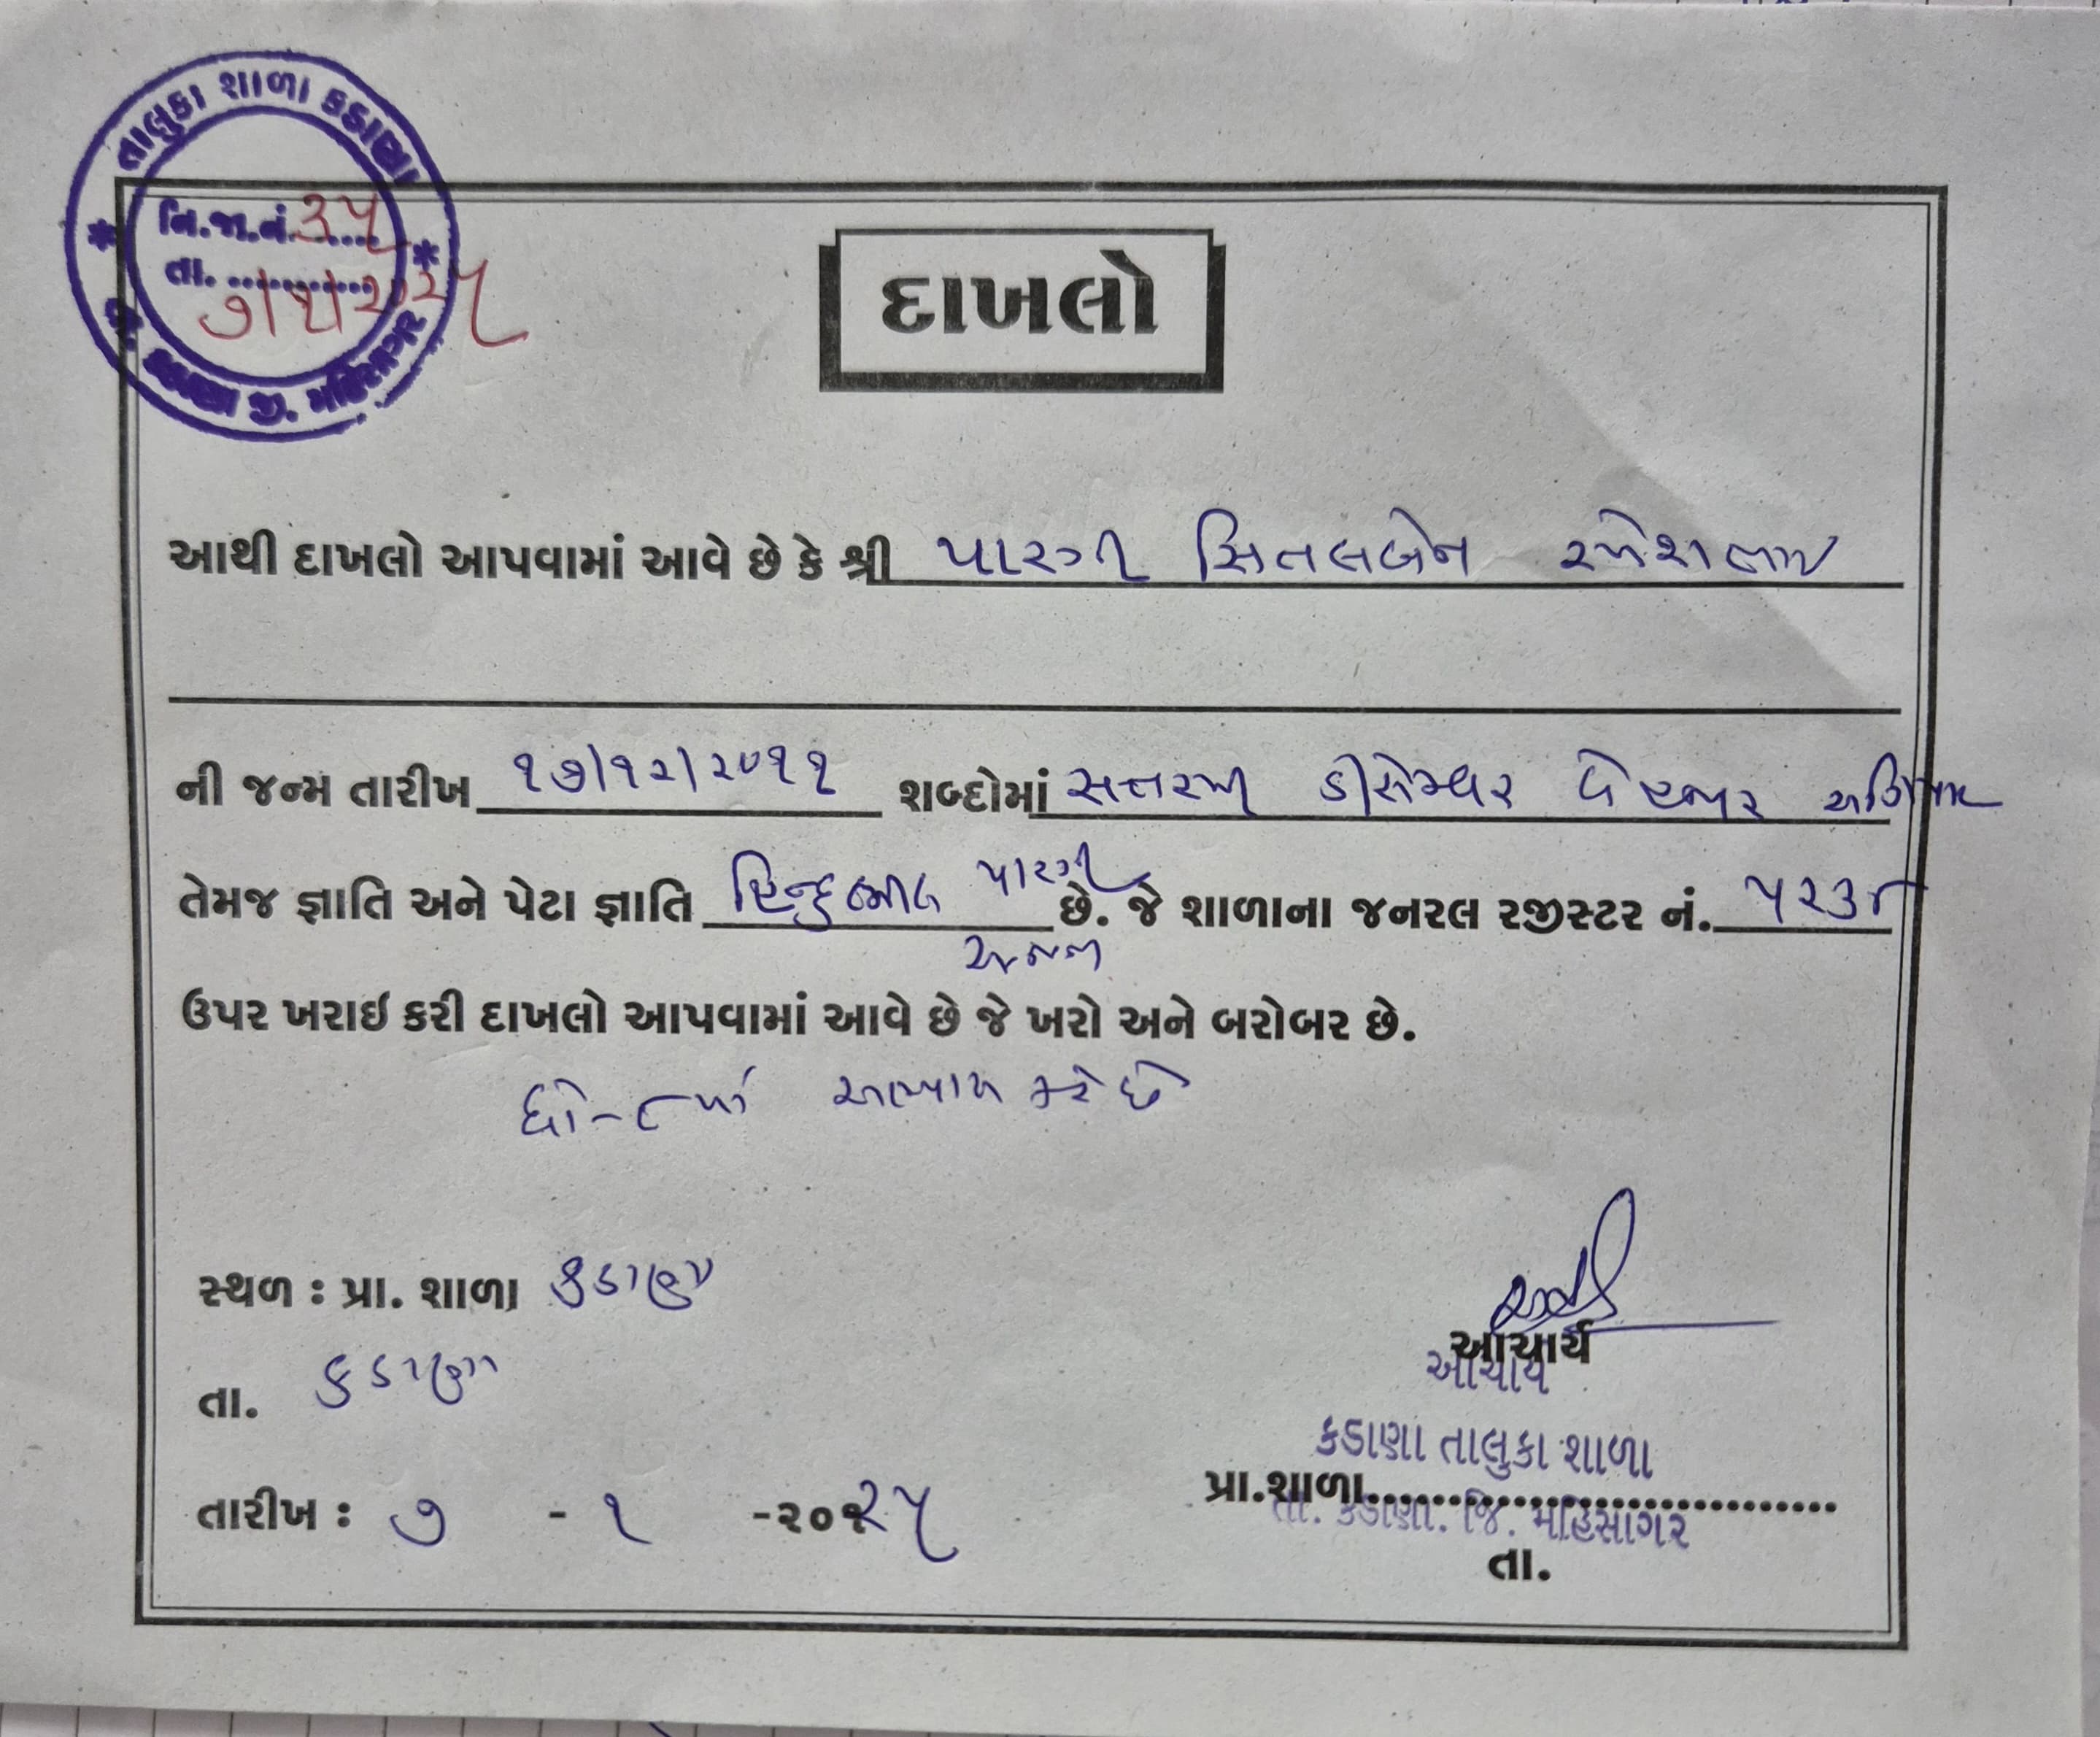 તાલુકા શાળા કડાણા
નિ.જા.નં. ૩૫
તા. ૭/૧/૨૦૨૫
તા. કડાણા જી. મહિસાગર
દાખલો
આથી દાખલો આપવામાં આવે છે કે શ્રી પારગી સિતલબેન રમેશભાઈ
ની જન્મ તારીખ ૧૭/૧૨/૨૦૧૧ શબ્દોમાં સત્તરમી ડીસેમ્બર બે હજાર અગિયાર
તેમજ જ્ઞાતિ અને પેટા જ્ઞાતિ હિન્દુ ભીલ પારગી છે. જે શાળાના જનરલ રજીસ્ટર નં. ૫૨૩૪
ઉપર ખરાઇ કરી દાખલો આપવામાં આવે છે જે ખરો અને બરોબર છે.
ધો-૮માં અભ્યાસ કરે છે
સ્થળ : પ્રા. શાળા કડાણા
તા. કડાણા
તારીખ : ૭ -૧ -૨૦૨૫
આચાર્ય
આચાર્ય
કડાણા તાલુકા શાળા
પ્રા.શાળા..............................
તા. કડાણા. જિ. મહિસાગર
તા.